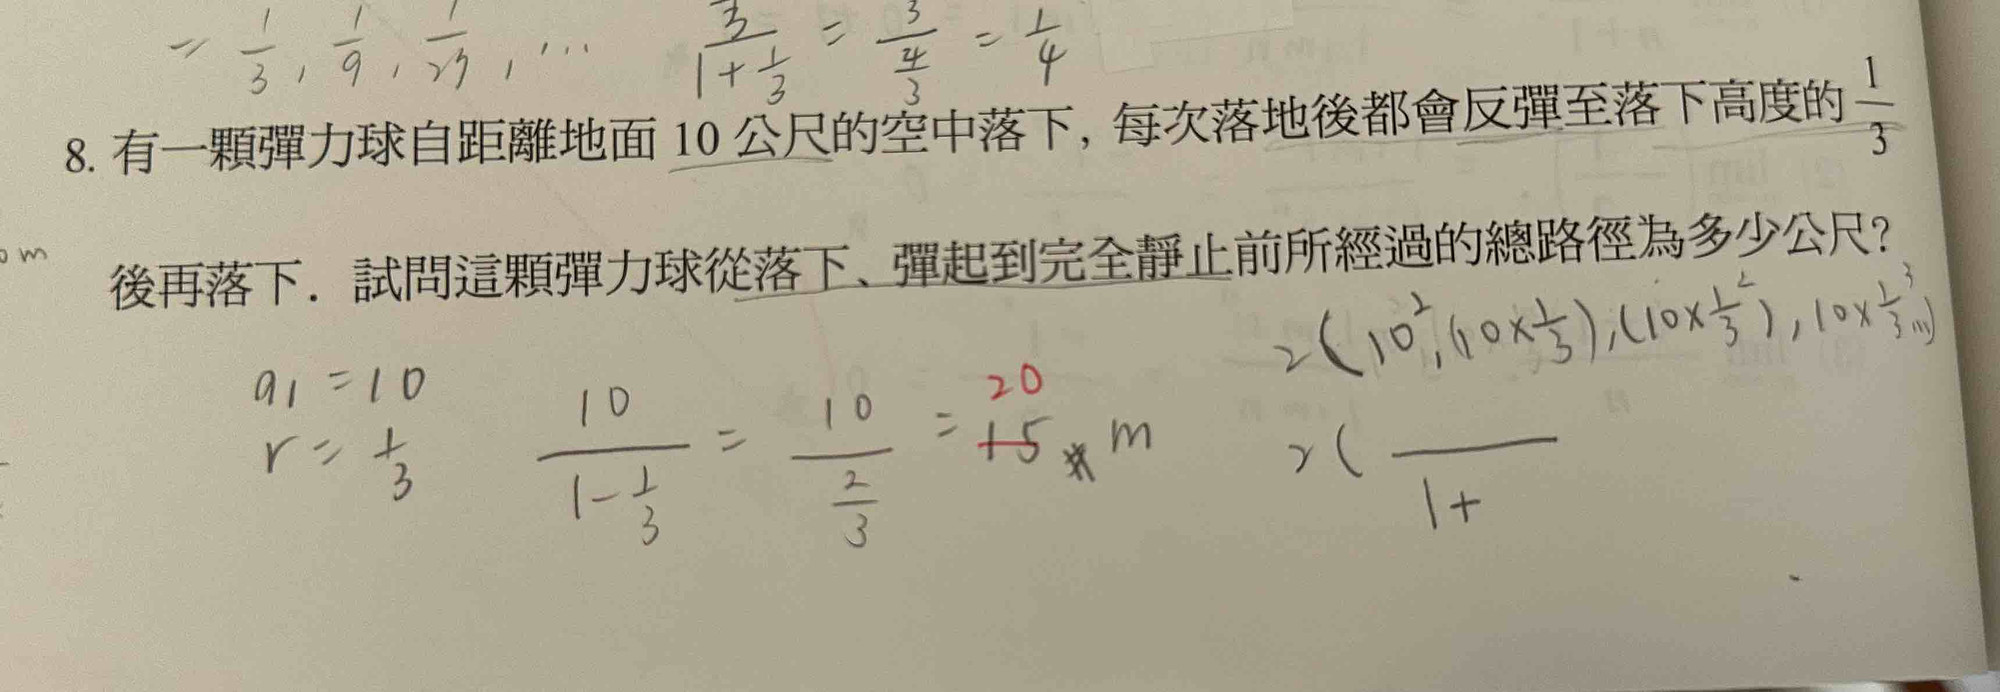 = 1/3, 1/9, 1/27, ... 3/(1+1/3) = 3/(4/3) = 1/4
8. 有一顆彈力球自距離地面 10 公尺的空中落下, 每次落地後都會反彈至落下高度的 1/3
om
後再落下. 試問這顆彈力球從落下、彈起到完全靜止前所經過的總路徑為多少公尺?
2(10, (10×1/3), (10×1/3²), 10×1/3³ ...)
a1 = 10
r = 1/3
10/(1-1/3) = 10/(2/3) = 15 m
20
2( 1+